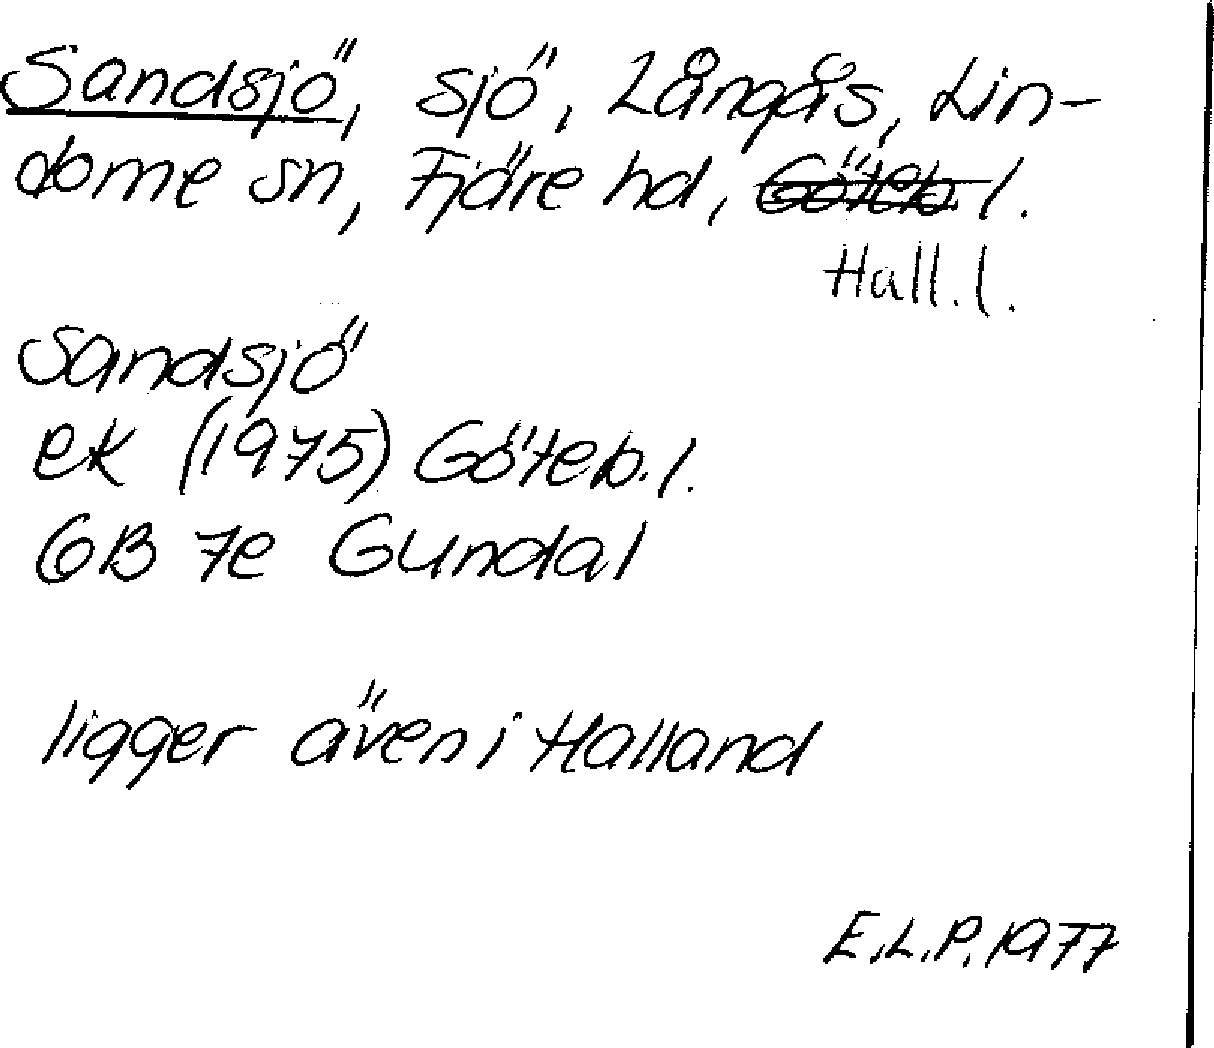 Sandsjö, sjö, Långås, Lin-
dome sn, Fjäre hd, Göteb. l.
Hall. l.
Sandsjö
ek (1975) Göteb. l.
6B 7e Gundal
ligger även i Halland
E.L.P. 1977